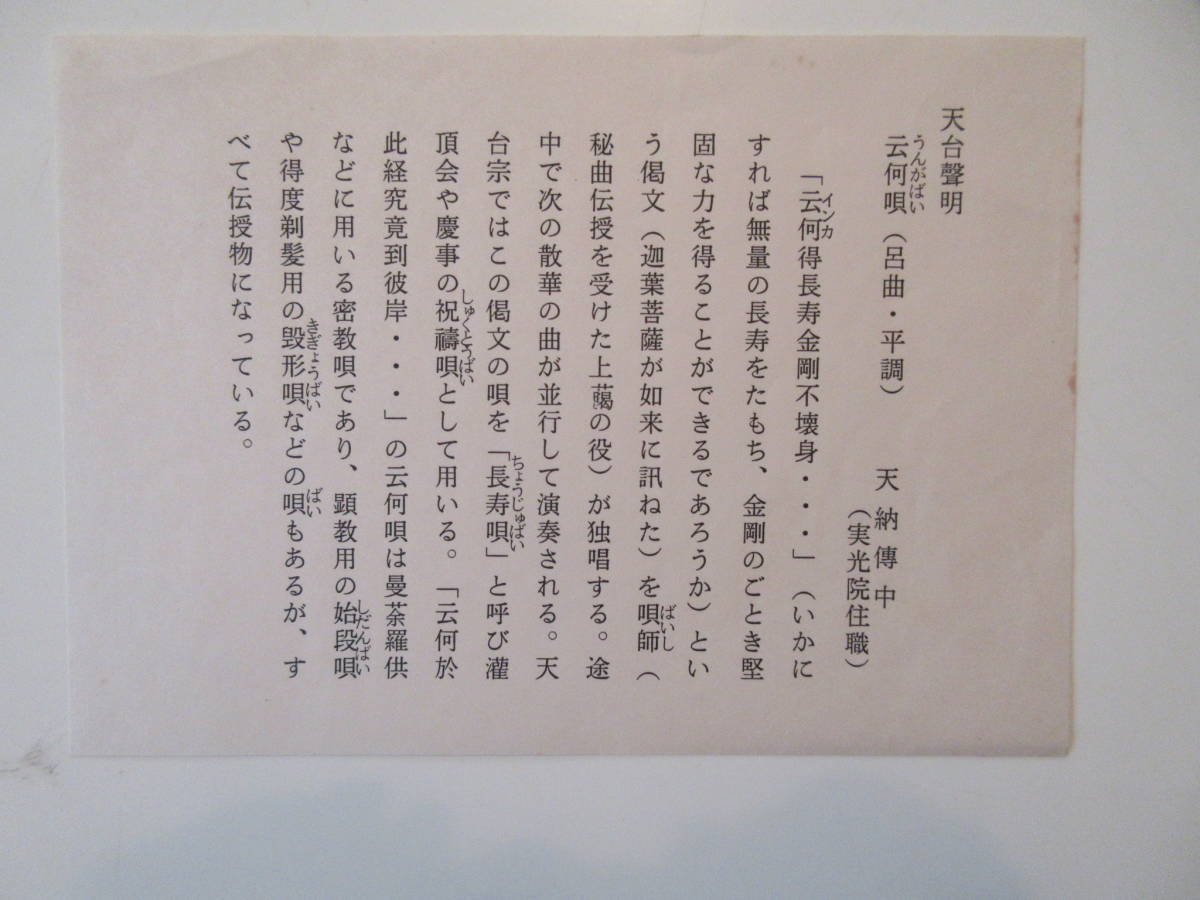 天台聲明
云何唄（呂曲・平調）
うんがばい
天納傳中
（実光院住職）
「云何得長寿金剛不壊身・・・」（いかに
インカ
すれば無量の長寿をたもち、金剛のごとき堅
固な力を得ることができるであろうか）とい
う偈文（迦葉菩薩が如来に訊ねた）を唄師（
ばいし
秘曲伝授を受けた上﨟の役）が独唱する。途
中で次の散華の曲が並行して演奏される。天
台宗ではこの偈文の唄を「長寿唄」と呼び灌
ちょうじゅばい
頂会や慶事の祝禱唄として用いる。「云何於
しゅくとうばい
此経究竟到彼岸・・・」の云何唄は曼荼羅供
などに用いる密教唄であり、顕教用の始段唄
しだんばい
や得度剃髪用の毀形唄などの唄もあるが、す
きぎょうばい
ばい
べて伝授物になっている。